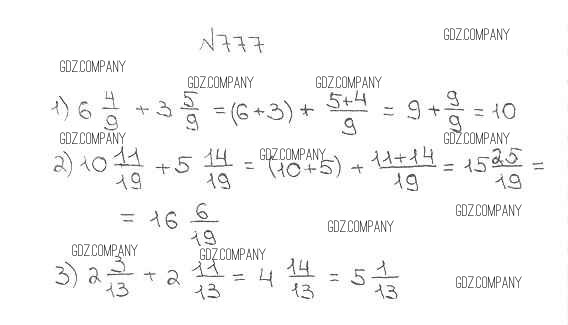 √777
GDZ.COMPANY
GDZ.COMPANY
GDZ.COMPANY GDZ.COMPANY
1) 6 4/9 + 3 5/9 = (6+3) + 5+4/9 = 9 + 9/9 = 10
GDZ.COMPANY GDZ.COMPANY GDZ.COMPANY
2) 10 11/19 + 5 14/19 = (10+5) + 11+14/19 = 15 25/19 =
= 16 6/19
GDZ.COMPANY
GDZ.COMPANY
GDZ.COMPANY GDZ.COMPANY
3) 2 3/13 + 2 11/13 = 4 14/13 = 5 1/13
GDZ.COMPANY